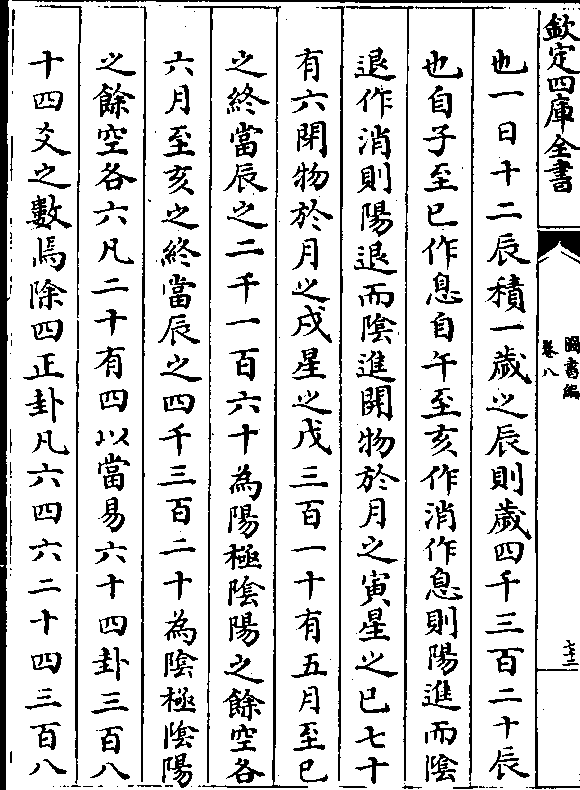 欽定四庫全書
圖書編
卷八
七十三
也一日十二辰積一歲之辰則歲四千三百二十辰
也自子至巳作息自午至亥作消作息則陽進而陰
退作消則陽退而陰進開物於月之寅星之巳七十
有六閉物於月之戌星之戊三百一十有五月至巳
之終當辰之二千一百六十為陽極陰陽之餘空各
六月至亥之終當辰之四千三百二十為陰極陰陽
之餘空各六凡二十有四以當易六十四卦三百八
十四爻之數焉除四正卦凡六四六二十四三百八